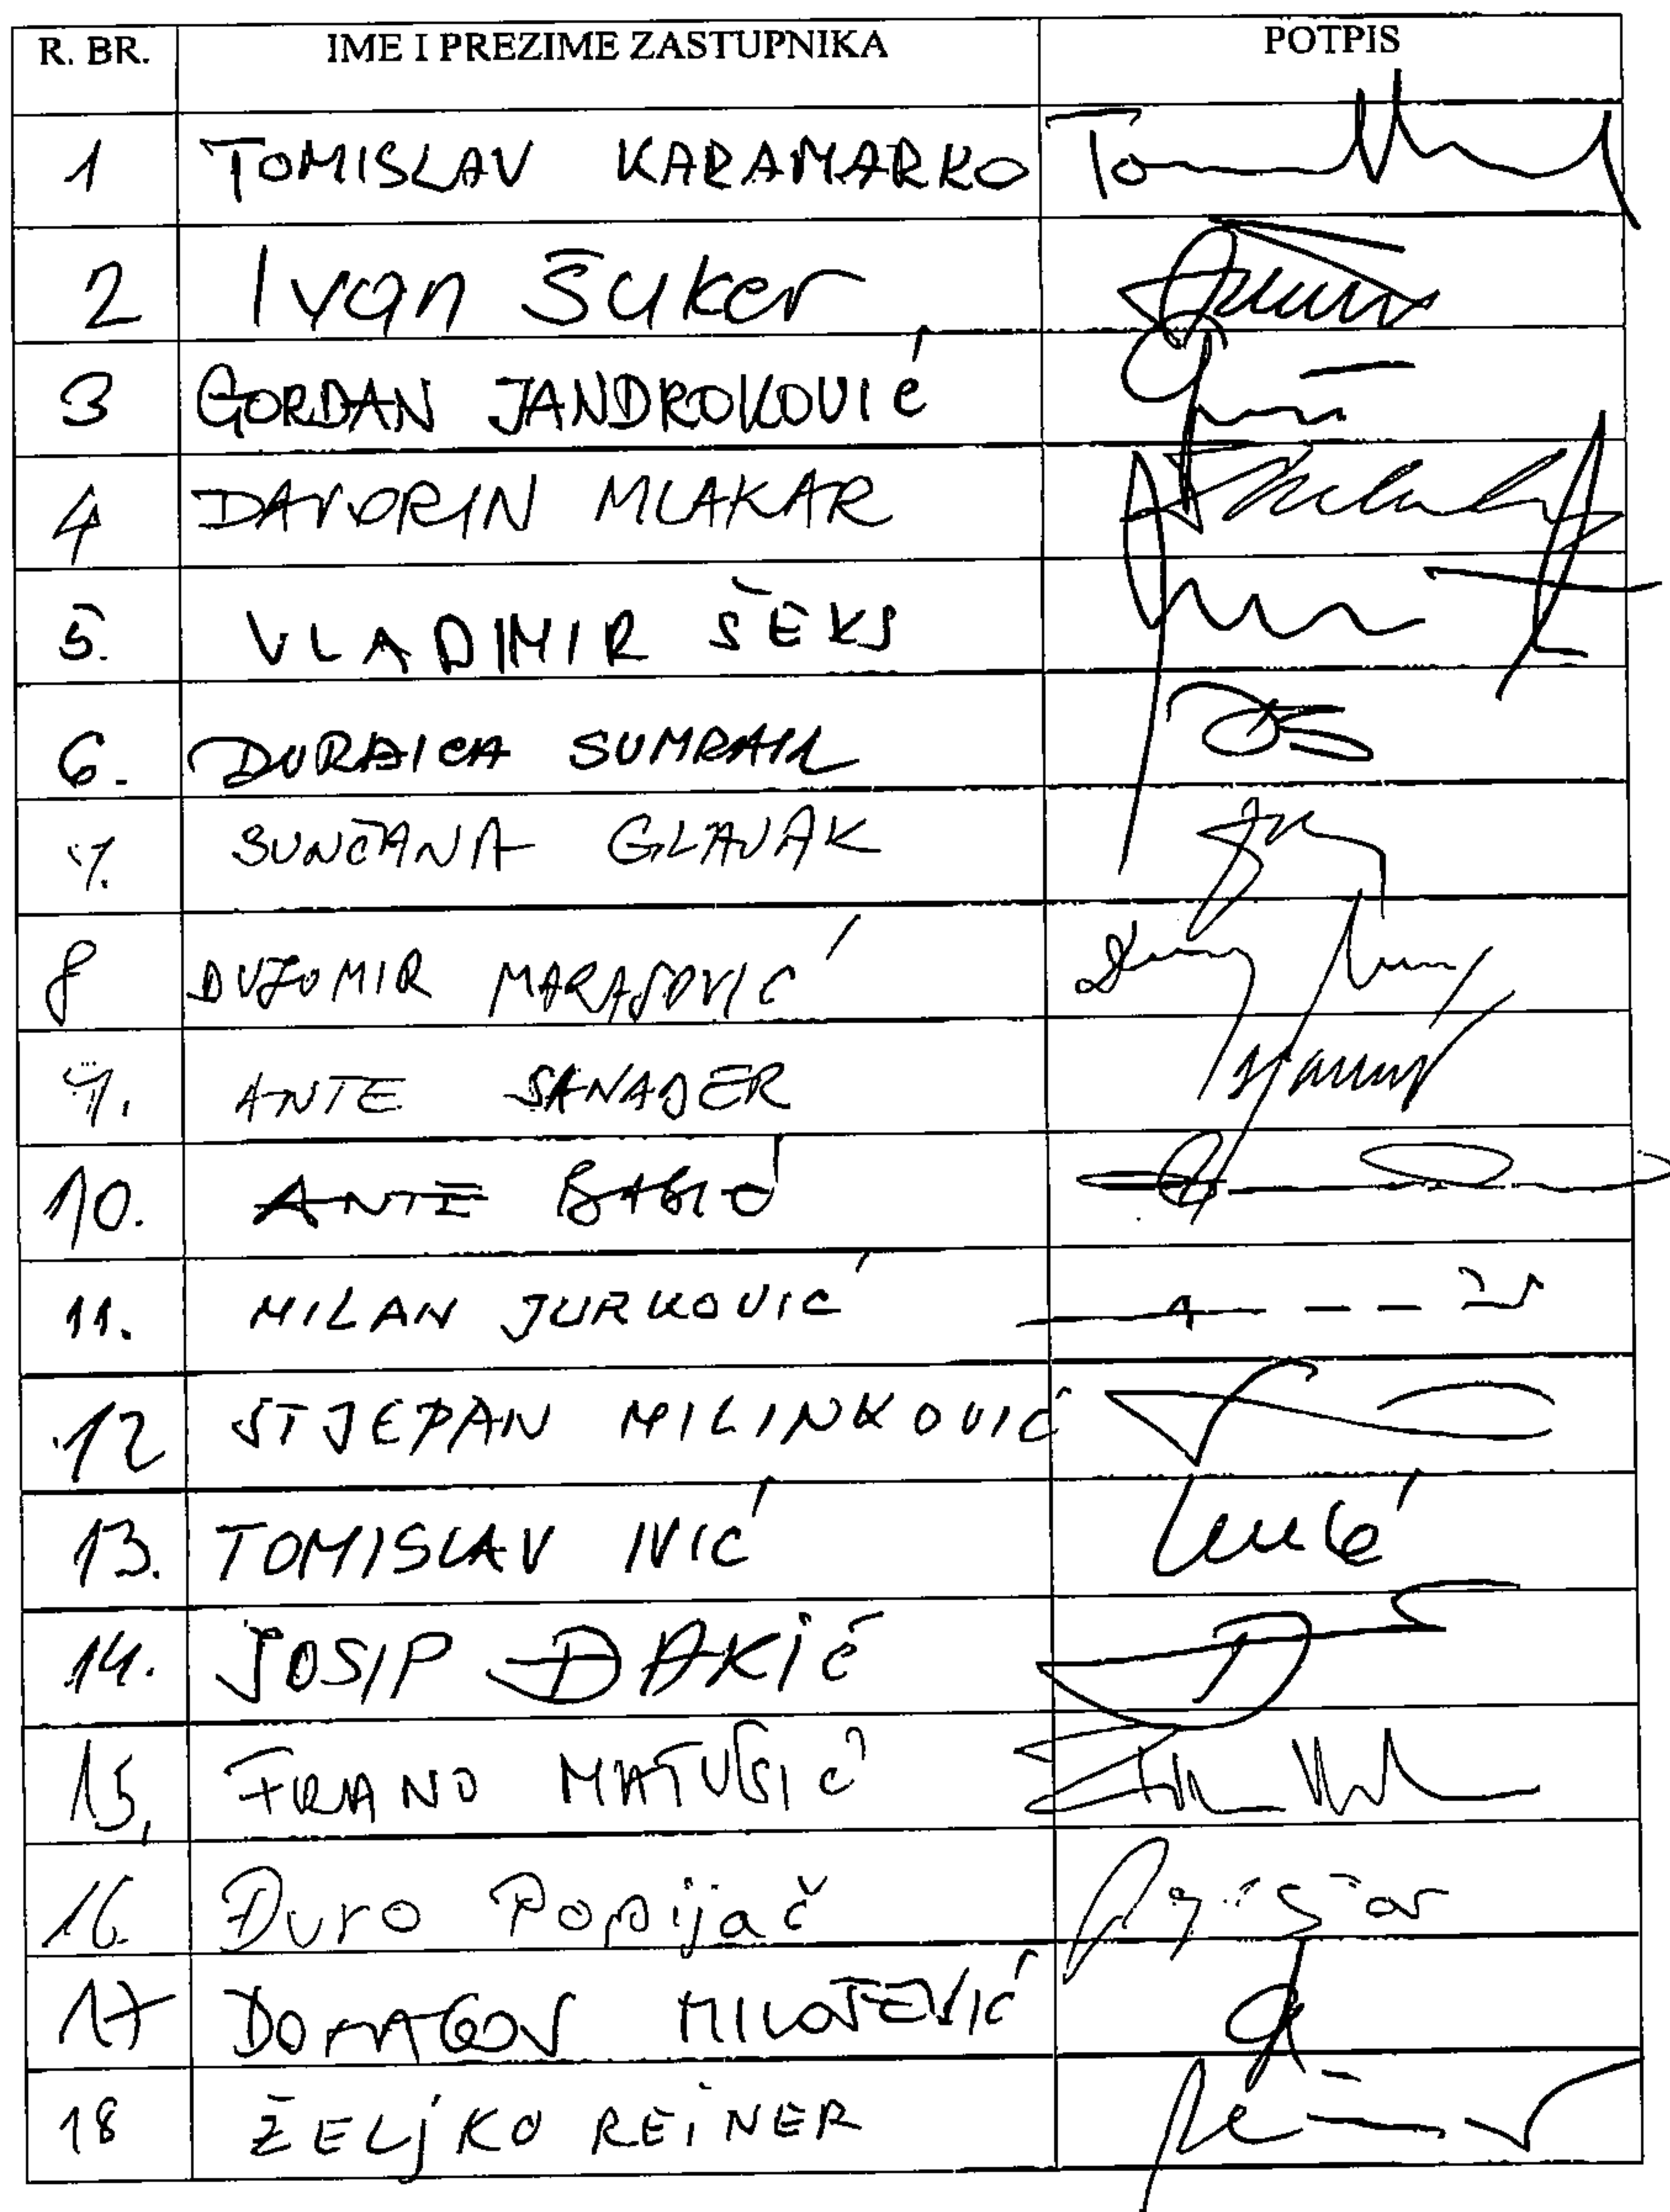 R. BR. IME I PREZIME ZASTUPNIKA POTPIS
1 TOMISLAV KARAMARKO
2 Ivan Šuker
3 GORDAN JANDROKOVIĆ
4 DAVORIN MLAKAR
5. VLADIMIR ŠEKS
6. ĐURĐICA SUMRAK
7. SUNČANA GLAVAK
8 DUJOMIR MARASOVIĆ
9. ANTE SANADER
10. ANTE BABIĆ
11. MILAN JURKOVIĆ
12 STJEPAN MILINKOVIĆ
13. TOMISLAV IVIĆ
14. JOSIP ĐAKIĆ
15. FRANO MATUŠIĆ
16. Đuro Popijač
17 DOMAGOJ MILOŠEVIĆ
18 ŽELJKO REINER